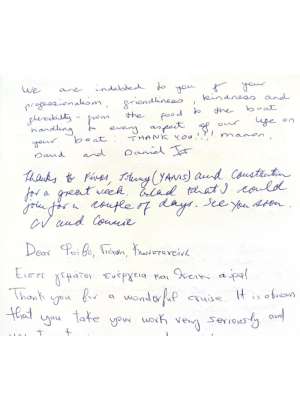 We are indebted to you for your
professionalism, friendliness, kindness and
flexibility - from the food to the boat
handling to every aspect of our life on
your boat. THANK YOU!!! Manon,
David and Daniel
Thanks to Johnny (YANIS) and Constantin
for a great week. Glad that I could
join for a couple of days. See you soon.
and Connie
Dear Φοίβο, Γιάννη, Κωνσταντίνε
Είστε γεμάτοι ενέργεια και
Thank you for a wonderful cruise. It is obvious
that you take your work very seriously and